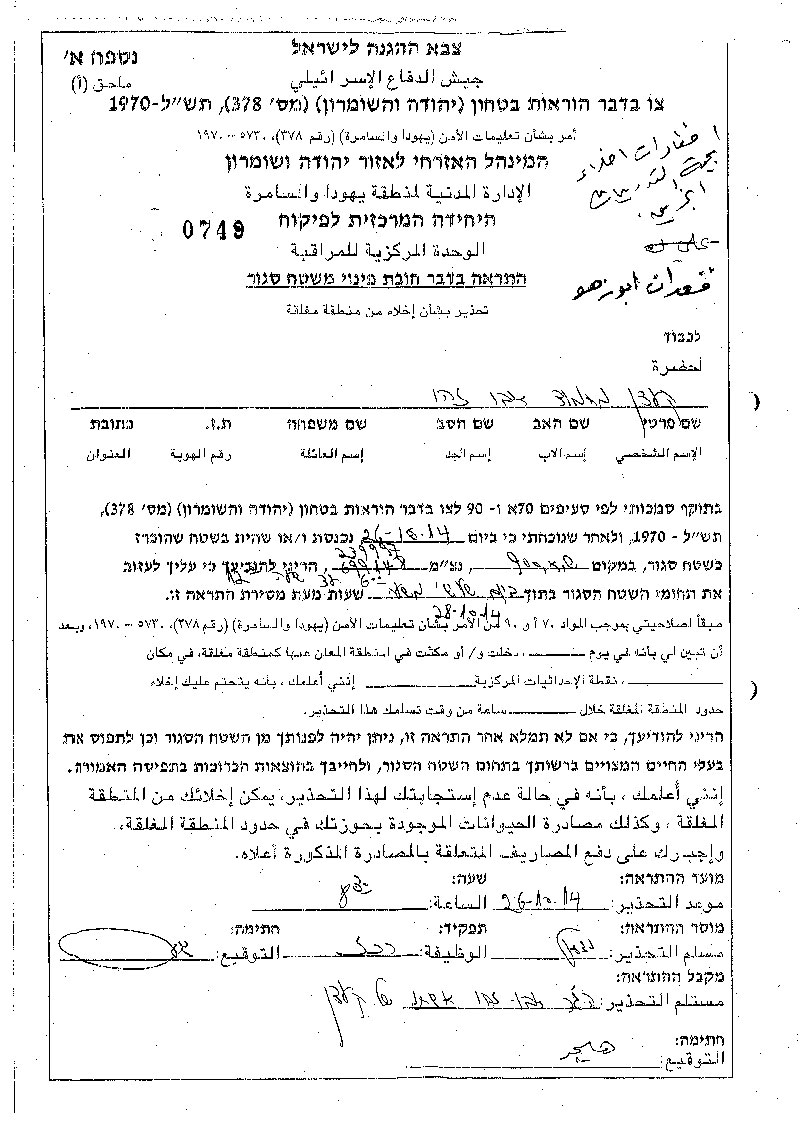 נספח א'
ملحق (أ)
צבא ההגנה לישראל
جيش الدفاع الإسرائيلي
צו בדבר הוראות בטחון (יהודה והשומרון) (מס' 378), תש"ל-1970
أمر بشأن تعليمات الأمن (يهودا والسامرة) (رقم ٣٧٨)، ٥٧٣٠ – ١٩٧٠
המינהל האזרחי לאזור יהודה ושומרון
الإدارة المدنية لمنطقة يهودا والسامرة
היחידה המרכזית לפיקוח
0749
الوحدة المركزية للمراقبة
התראה בדבר חובת פינוי משטח סגור
تحذير بشأن إخلاء من منطقة مغلقة
اخطارات اخلاء
بحجة التدريبات
قعدان ابو زهو
לכבוד
لحضرة
שם פרטי שם האב שם הסב שם משפחה ת.ז. כתובת
الإسم الشخصي إسم الاب إسم الجد إسم العائلة رقم الهوية العنوان
בתוקף סמכותי לפי סעיפים 70א ו- 90 לצו בדבר הוראות בטחון (יהודה והשומרון) (מס' 378),
תש"ל - 1970, ולאחר שנוכחתי כי ביום 26-10-14 נכנסת ו/או שהית בשטח שהוכרז
כשטח סגור, במקום נ"צ"מ הריני להודיעך כי עליך לעזוב
את תחומי השטח הסגור בתוך שעות מעת מסירת התראה זו.
28-10-14
مبقأ اصلاحيتي بموجب المواد ٧٠ أ و ٩٠ من الأمر بشأن تعليمات الأمن (يهودا والسامرة) (رقم ٣٧٨)، ٥٧٣٠ – ١٩٧٠، وبعد
أن تبين لي بأنه في يوم ، دخلت و/ أو مكثت في المنطقة المعلن عنها كمنطقة مغلقة، في مكان
، نقطة الإحداثيات المركزية إنني أعلمك ، بأنه يتحتم عليك إخلاء
حدود المنطقة المغلقة خلال ساعة من وقت تسلمك هذا التحذير.
הריני להודיעך, כי אם לא תמלא אחר התראה זו, ניתן יהיה לפנותך מן השטח הסגור וכן לתפוס את
בעלי החיים המצויים ברשותך בתחום השטח הסגור, ולחייבך בהוצאות הכרוכות בתפיסה האמורה.
إنني أعلمك ، بأنه في حالة عدم إستجابتك لهذا التحذير، يمكن إخلائك من المنطقة
المغلقة ، وكذلك مصادرة الحيوانات الموجودة بحوزتك في حدود المنطقة المغلقة،
وإجبرك على دفع المصاريف المتعلقة بالمصادرة المذكورة أعلاه.
מועד ההתראה: שעה:
موعد التحذير: 26-10-14 الساعة: 8
מוסר ההתראה: תפקיד: חתימה:
مسلم التحذير: الوظيفة: التوقيع:
מקבל ההתראה:
مستلم التحذير:
חתימה:
التوقيع: